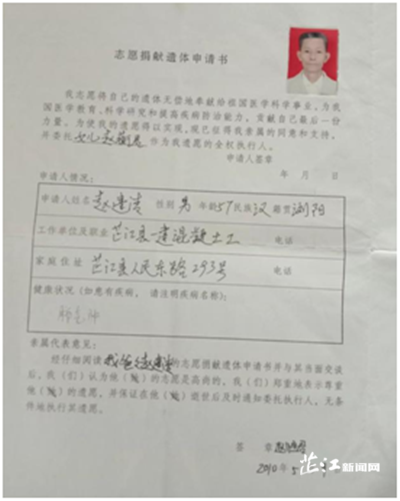 志愿捐献遗体申请书
我志愿将自己的遗体无偿地奉献给祖国医学科学事业，为我
国医学教育、科学研究和提高疾病防治能力，贡献自己最后一份
力量。为使我的遗愿得以实现，现已征得我亲属的同意和支持，
并委托 女儿赵 作为我遗愿的全权执行人。
申请人签章
年 月 日
申请人情况：
申请人姓名 赵 清 性别 男 年龄 57 民族 汉 籍贯 浏阳
工作单位及职业 芷江县建 混凝土工 电话
家庭住址 芷江县人民东路293号 电话
健康状况（如患有疾病，请注明疾病名称）：
亲属代表意见：
经仔细阅读 我爸爸赵 的志愿捐献遗体申请书并与其当面交谈
后，我（们）认为他（她）的志愿是高尚的，我（们）郑重地表示尊重
他（她）的遗愿，并保证在他（她）逝世后及时通知委托执行人，无条
件地执行其遗愿。
签 章 赵
2010 年 5
芷江新闻网